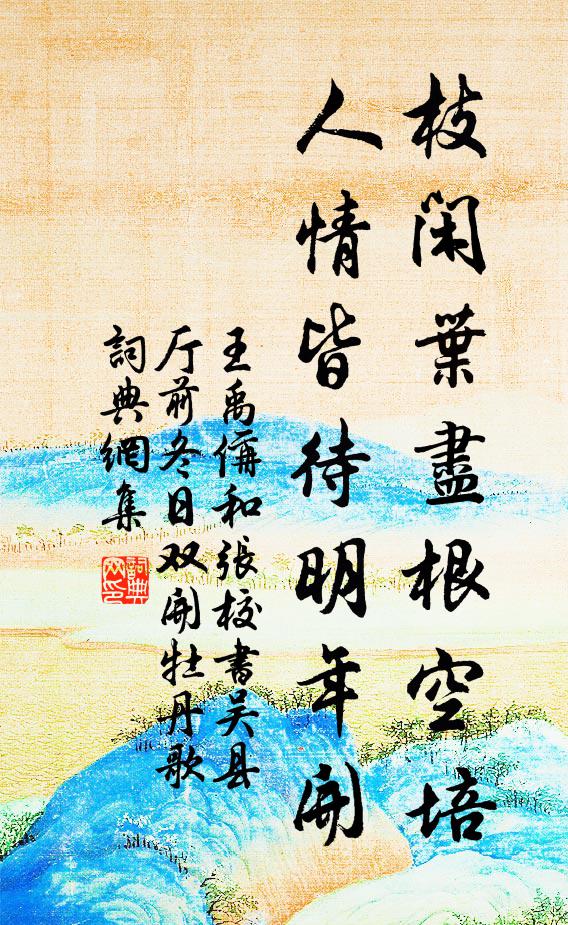 枝闲葉盡根空培
人情皆待明年開
王禹偁和張校書吴县
厅前冬日双開牡丹歌
詞典網集
詞典
网印